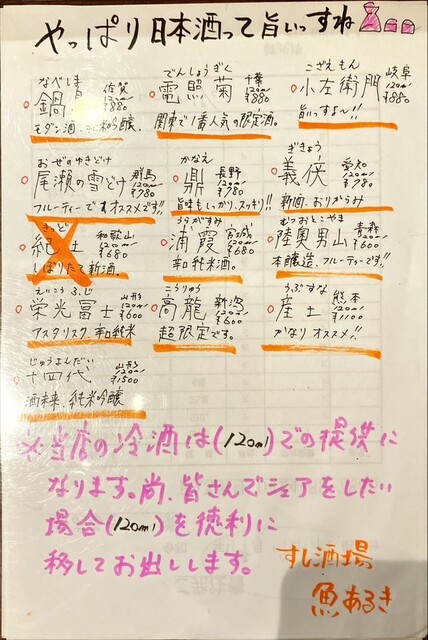 やっぱり日本酒って旨いっすね
なべしま
鍋島 佐賀 120ml ¥880
モダン酒、純米吟醸。
でんしょうぎく
電照菊 千葉 120ml ¥880
関東で1番人気の限定酒。
こざえもん
小左衛門 岐阜 120ml ¥880
旨いっすよ〜!!
おぜのゆきどけ
尾瀬の雪どけ 群馬 120ml ¥780
フルーティーでオススメです!!
かなえ
鼎 長野 120ml ¥780
旨味もしっかり、スッキリ!!
ぎきょう
義侠 愛知 120ml ¥780
新酒、おりがらみ
きっど
紀土 和歌山 120ml
しぼりたて新酒。
うらがすみ
浦霞 宮城 120ml ¥680
辛口純米酒。
むつおとこやま
陸奥男山 青森 120ml ¥600
本醸造、フルーティーです!!
えいこうふじ
栄光冨士 山形 120ml ¥600
アスタリスク、辛口純米
こうりゅう
高龍 新潟 120ml ¥600
超限定です。
うぶすな
産土 熊本 120ml ¥1100
かなりオススメ!!
じゅうよんだい
十四代 山形 120ml ¥1500
酒未来、純米吟醸
※当店の冷酒は(120ml)での提供に
なります。尚、皆さんでシェアをしたい
場合(120ml)を徳利に
移してお出しします。
すし酒場
魚あるき